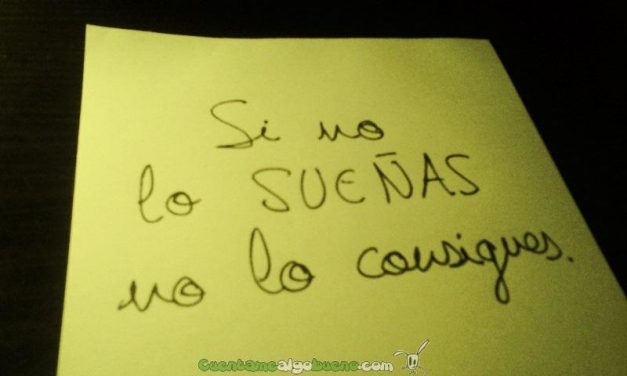 Si no
lo SUEÑAS
no lo consigues.
Cuentamealgobueno.com